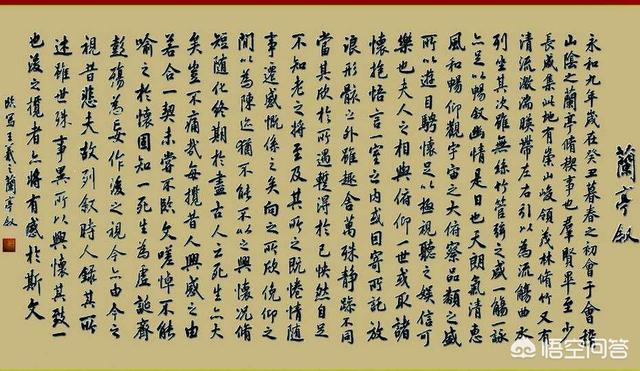 蘭亭叙
永和九年歲在癸丑暮春之初會于會稽
山陰之蘭亭脩稧事也群賢畢至少
長咸集此地有崇山峻領茂林脩竹又有
清流激湍暎帶左右引以為流觴曲水
列坐其次雖無絲竹管絃之盛一觴一詠
亦足以暢叙幽情是日也天朗氣清惠
風和暢仰觀宇宙之大俯察品類之盛
所以遊目騁懷足以極視聽之娛信可
樂也夫人之相與俯仰一世或取諸
懷抱悟言一室之内或因寄所託放
浪形骸之外雖趣舍萬殊靜躁不同
當其欣於所遇暫得於己怏然自足
不知老之將至及其所之既惓情隨
事遷感慨係之矣向之所欣俛仰之
間以為陳迹猶不能不以之興懷況脩
短隨化終期於盡古人云死生亦大
矣豈不痛哉每攬昔人興感之由
若合一契未嘗不臨文嗟悼不能
喻之於懷固知一死生為虛誕齊
彭殤為妄作後之視今亦由今之
視昔悲夫故列叙時人錄其所
述雖世殊事異所以興懷其致一
也後之攬者亦將有感於斯文
臨寫王羲之蘭亭叙
悟空问答